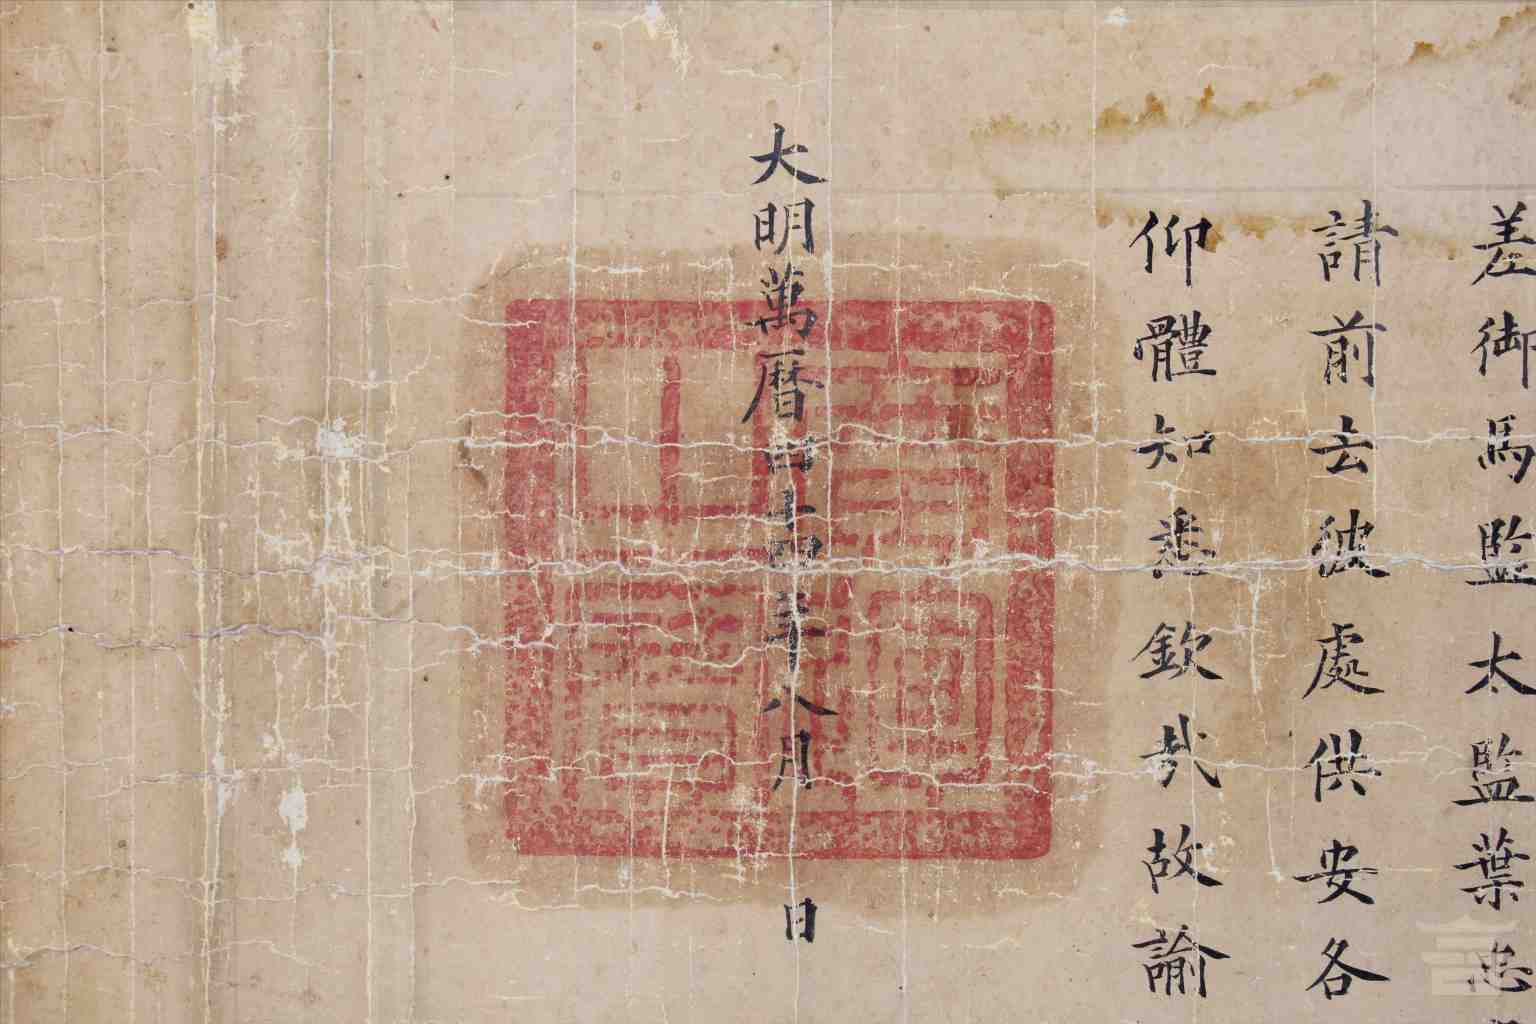 差御馬監太監葉忠
請前去彼處供安各
仰體知悉欽哉故諭
大明萬曆四十四年八月 日